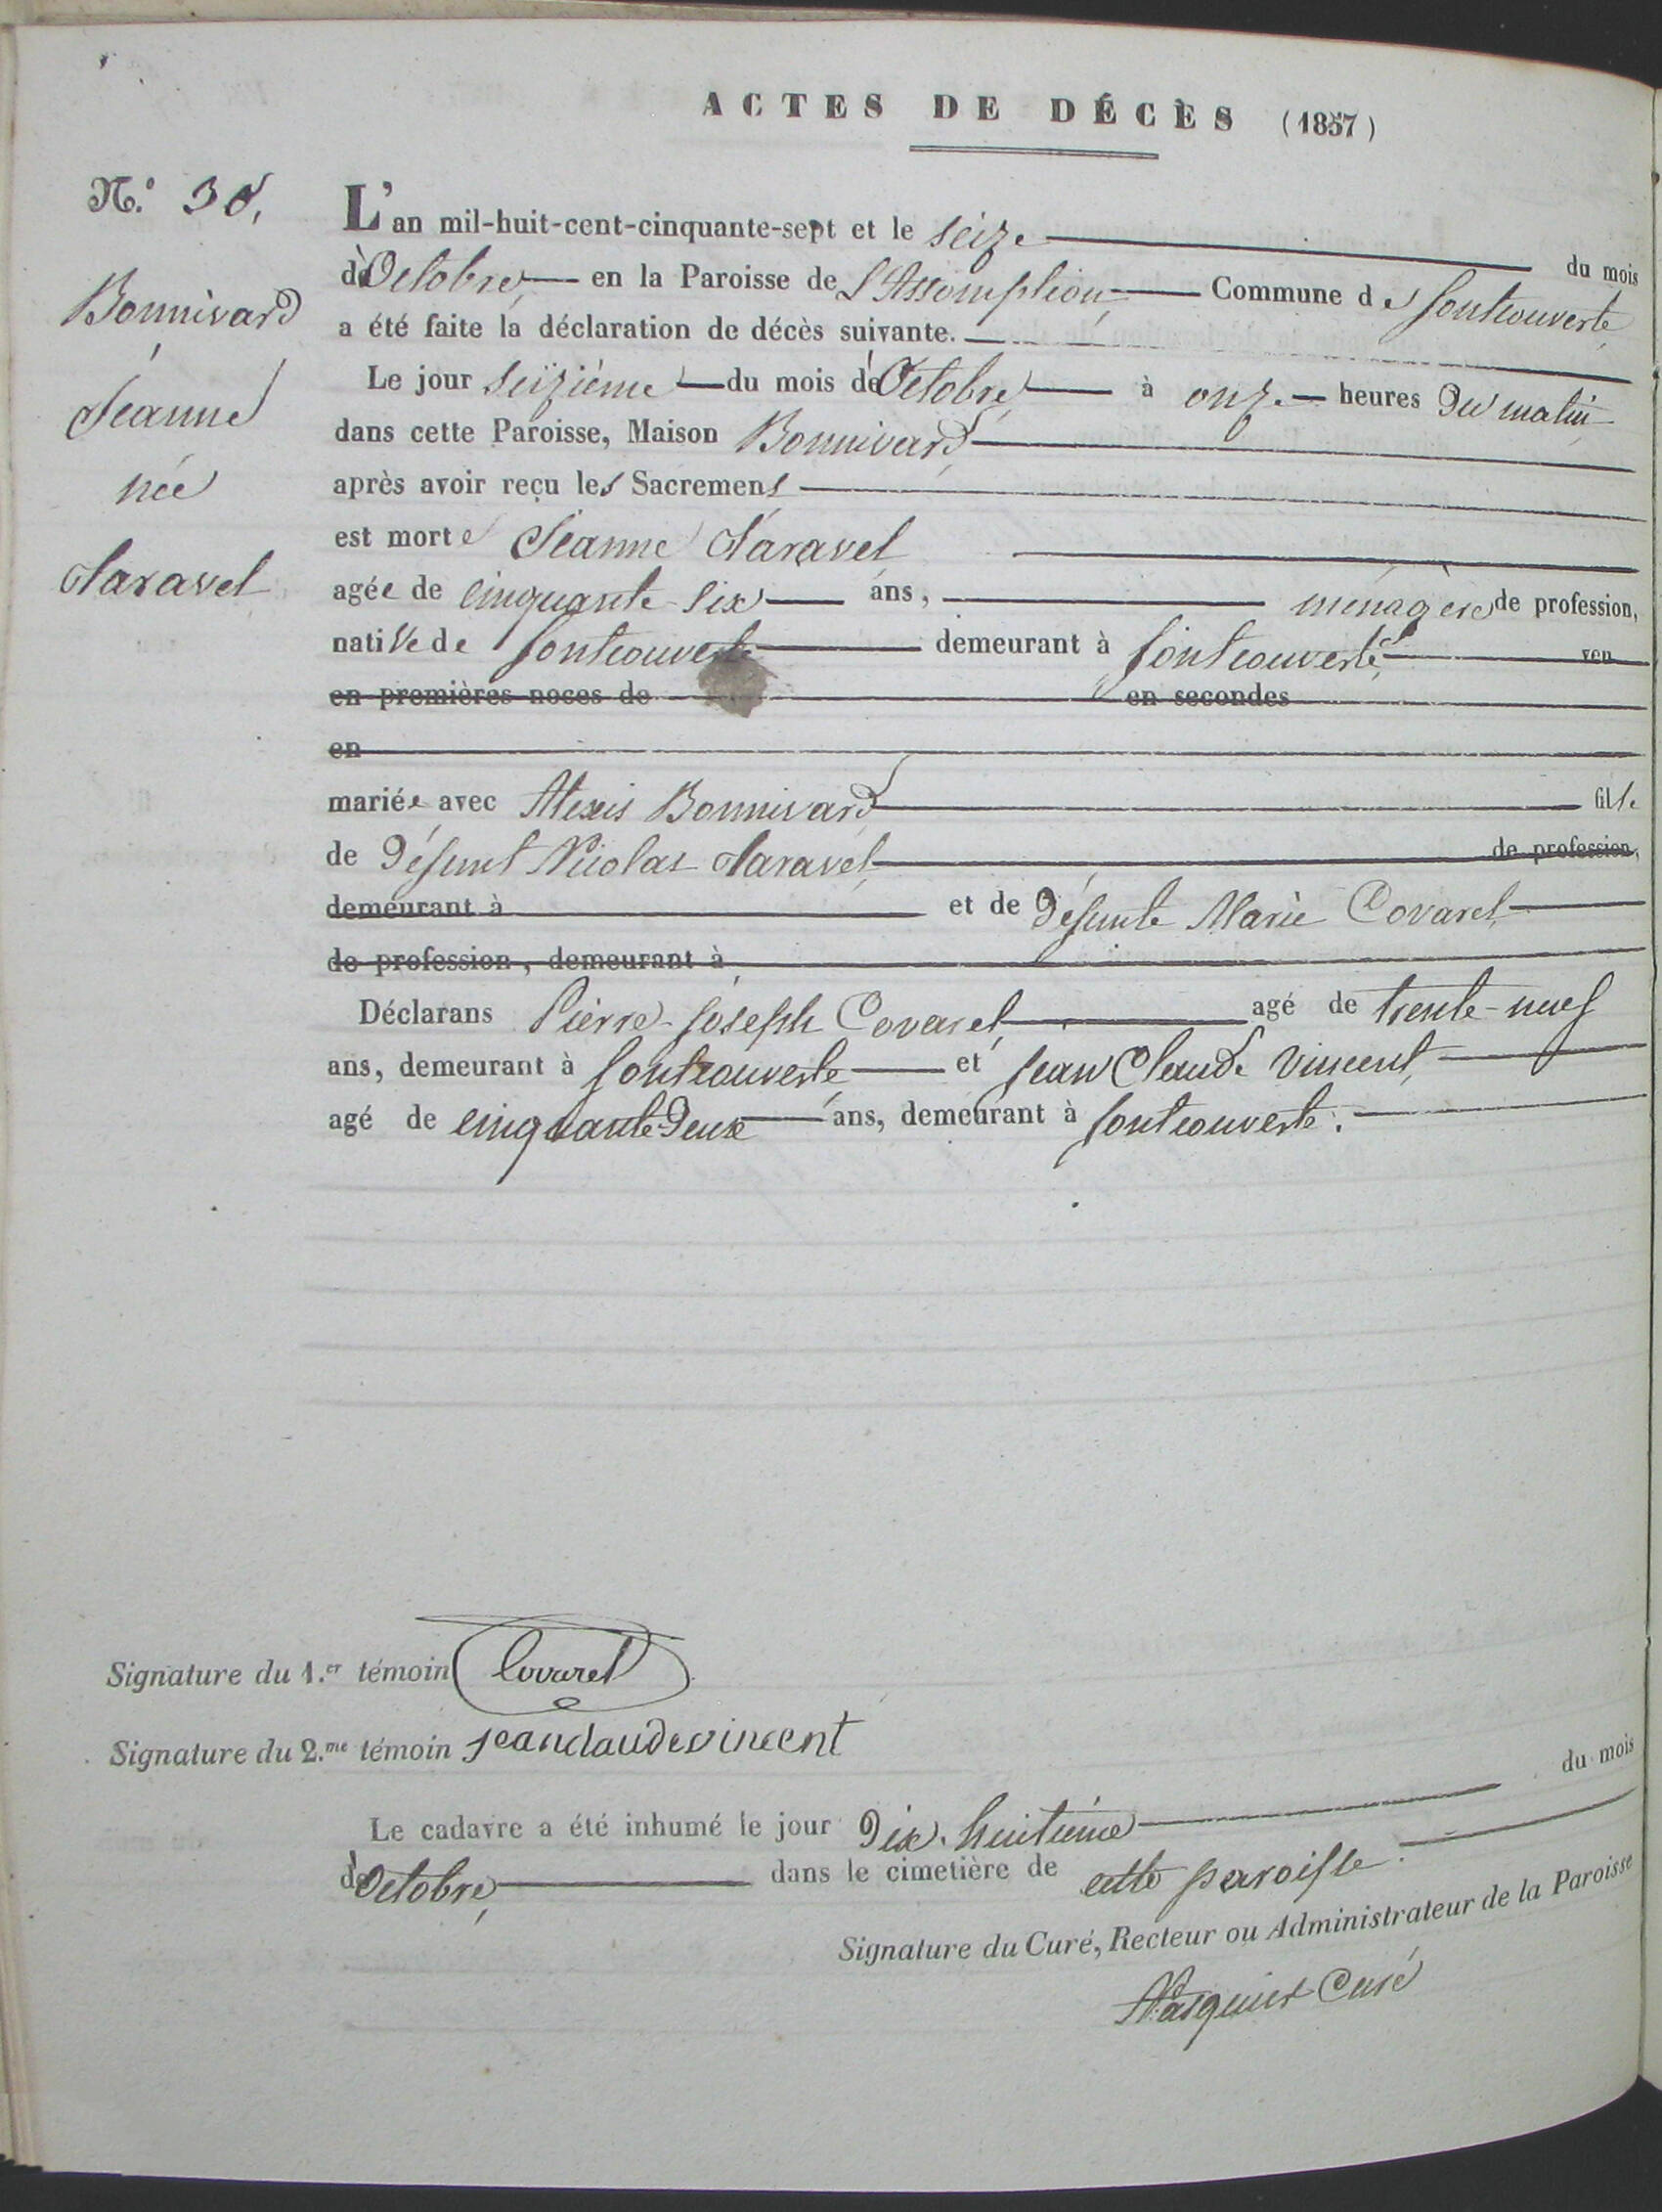 ACTES DE DÉCÈS (1857)
N.º 38,
Bonnivard
Jeanne
née
Taravel
L'an mil-huit-cent-cinquante-sept et le seize du mois
d'Octobre, en la Paroisse de L'Assomption, Commune de fontcouverte
a été faite la déclaration de décès suivante.
Le jour seizième du mois d'Octobre, à onze heures du matin
dans cette Paroisse, Maison Bonnivard
après avoir reçu les Sacremens
est morte Jeanne Taravel
agée de cinquante-six ans, ménagère de profession,
native de fontcouverte demeurant à fontcouverte, veu
en premières noces de en secondes
en
mariée avec Alexis Bonnivard fille
de défunt Nicolas Taravel, de profession,
demeurant à et de défunte Marie Covarel,
de profession, demeurant à
Déclarans Pierre-Joseph Covarel, agé de trente-neuf
ans, demeurant à fontcouverte et Jean Claude Vincent,
agé de cinquante-deux ans, demeurant à fontcouverte.
Signature du 1.er témoin Covarel
Signature du 2.me témoin jeanclaudevincent
Le cadavre a été inhumé le jour dix-huitième du mois
d'Octobre, dans le cimetière de cette paroisse.
Signature du Curé, Recteur ou Administrateur de la Paroisse
Curé